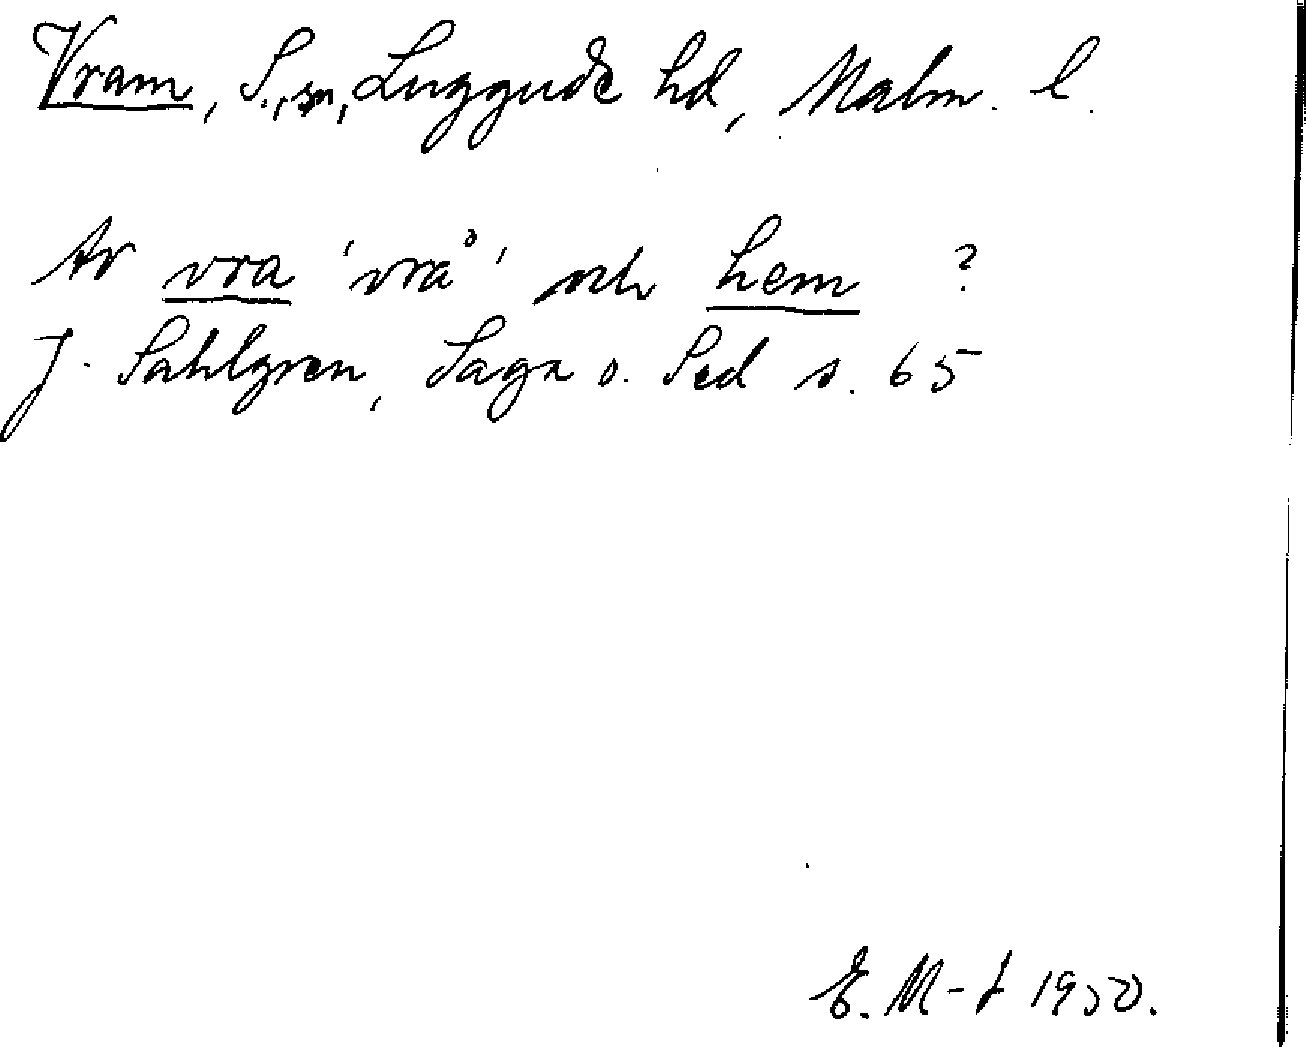 Vram, S., sn, Luggude hd, Malm. l.
Av vra 'vrå' och hem ?
J. Sahlgren, Saga o. Sed s. 65
E. M-f 1950.